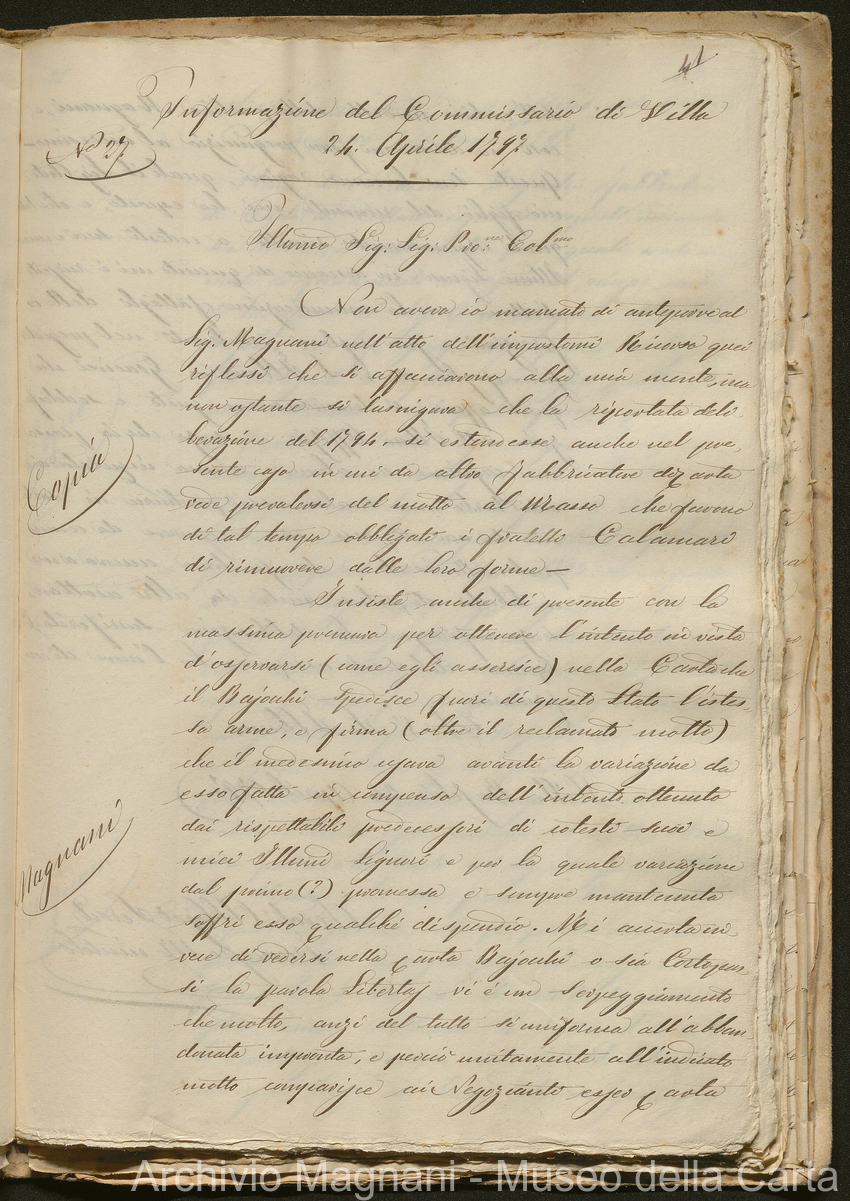 41
Informazione del Commissario di Villa
No 27
24. Aprile 1797
Illmio Sig: Sig: Pro:ne Colmo
Non aveva io mancato di anteporre al
Sig. Magnani nell'atto dell'impostomi Ricorso quei
riflessi che si affacciavono alla mia mente, ma
non ostante si lusingava che la riportata deli,
berazione del 1794. si estendesse anche nel pre,
sente caso in cui da altro Fabbricatore di Carta
Copia
vede prevalersi del motto al Masso che furono
di tal tempo obbligati i fratelli Calamari
di rimuovere dalle loro forme —
Insiste anche di presente con la
massima premura per ottenere l'intento in vista
d'osservarsi (come egli asserisce) nella Carta che
il Bajocchi spedisce fuori di questo Stato l'istes,
sa arme, e firma (oltre il reclamato motto)
che il medesimo usava avanti la variazione da
esso fatta in compenso dell'intento ottenuto
dai rispettabili predecessori di cotesti suoi e
Magnani
miei Illmi Signori e per la quale variazione
dal primo (?) promessa e sempre mantenuta
soffrì esso qualche dispendio. Mi accerta in,
vece di vedersi nella Carta Bajocchi o sia
si la parola Libertas vi è un Serpeggiamento
che molto, anzi del tutto si uniforma all'abban,
donata impronta, e perciò unitamente all'indicato
motto comparisce ai Negozianti esser Carta
Archivio Magnani - Museo della Carta